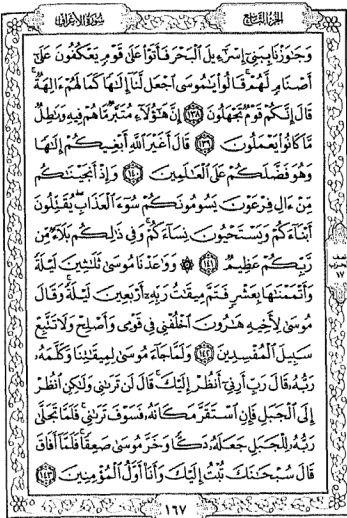 الجزء التاسع
سورة الأعراف
وَجَٰوَزْنَا بِبَنِىٓ إِسْرَٰٓءِيلَ ٱلْبَحْرَ فَأَتَوْا۟ عَلَىٰ قَوْمٍ يَعْكُفُونَ عَلَىٰٓ
أَصْنَامٍ لَّهُمْ ۚ قَالُوا۟ يَٰمُوسَى ٱجْعَل لَّنَآ إِلَٰهًا كَمَا لَهُمْ ءَالِهَةٌ ۚ
قَالَ إِنَّكُمْ قَوْمٌ تَجْهَلُونَ ١٣٨ إِنَّ هَٰٓؤُلَآءِ مُتَبَّرٌ مَّا هُمْ فِيهِ وَبَٰطِلٌ
مَّا كَانُوا۟ يَعْمَلُونَ ١٣٩ قَالَ أَغَيْرَ ٱللَّهِ أَبْغِيكُمْ إِلَٰهًا
وَهُوَ فَضَّلَكُمْ عَلَى ٱلْعَٰلَمِينَ ١٤٠ وَإِذْ أَنجَيْنَٰكُم
مِّنْ ءَالِ فِرْعَوْنَ يَسُومُونَكُمْ سُوٓءَ ٱلْعَذَابِ ۖ يُقَتِّلُونَ
أَبْنَآءَكُمْ وَيَسْتَحْيُونَ نِسَآءَكُمْ ۚ وَفِى ذَٰلِكُم بَلَآءٌ مِّن
رَّبِّكُمْ عَظِيمٌ ١٤١ ۞ وَوَٰعَدْنَا مُوسَىٰ ثَلَٰثِينَ لَيْلَةً
وَأَتْمَمْنَٰهَا بِعَشْرٍ فَتَمَّ مِيقَٰتُ رَبِّهِۦٓ أَرْبَعِينَ لَيْلَةً ۚ وَقَالَ
مُوسَىٰ لِأَخِيهِ هَٰرُونَ ٱخْلُفْنِى فِى قَوْمِى وَأَصْلِحْ وَلَا تَتَّبِعْ
سَبِيلَ ٱلْمُفْسِدِينَ ١٤٢ وَلَمَّا جَآءَ مُوسَىٰ لِمِيقَٰتِنَا وَكَلَّمَهُۥ
رَبُّهُۥ قَالَ رَبِّ أَرِنِىٓ أَنظُرْ إِلَيْكَ ۚ قَالَ لَن تَرَىٰنِى وَلَٰكِنِ ٱنظُرْ
إِلَى ٱلْجَبَلِ فَإِنِ ٱسْتَقَرَّ مَكَانَهُۥ فَسَوْفَ تَرَىٰنِى ۚ فَلَمَّا تَجَلَّىٰ
رَبُّهُۥ لِلْجَبَلِ جَعَلَهُۥ دَكًّا وَخَرَّ مُوسَىٰ صَعِقًا ۚ فَلَمَّآ أَفَاقَ
قَالَ سُبْحَٰنَكَ تُبْتُ إِلَيْكَ وَأَنَا۠ أَوَّلُ ٱلْمُؤْمِنِينَ ١٤٣
١٦٧